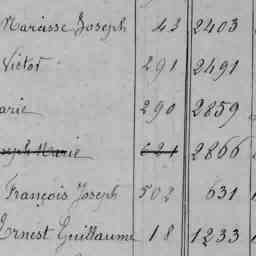 Narcisse Joseph 43 2403
Victor 291 2491
arie 290 2859
oseph Marie 621 2866
François Joseph 502 631
Ernest Guillaume 18 1233